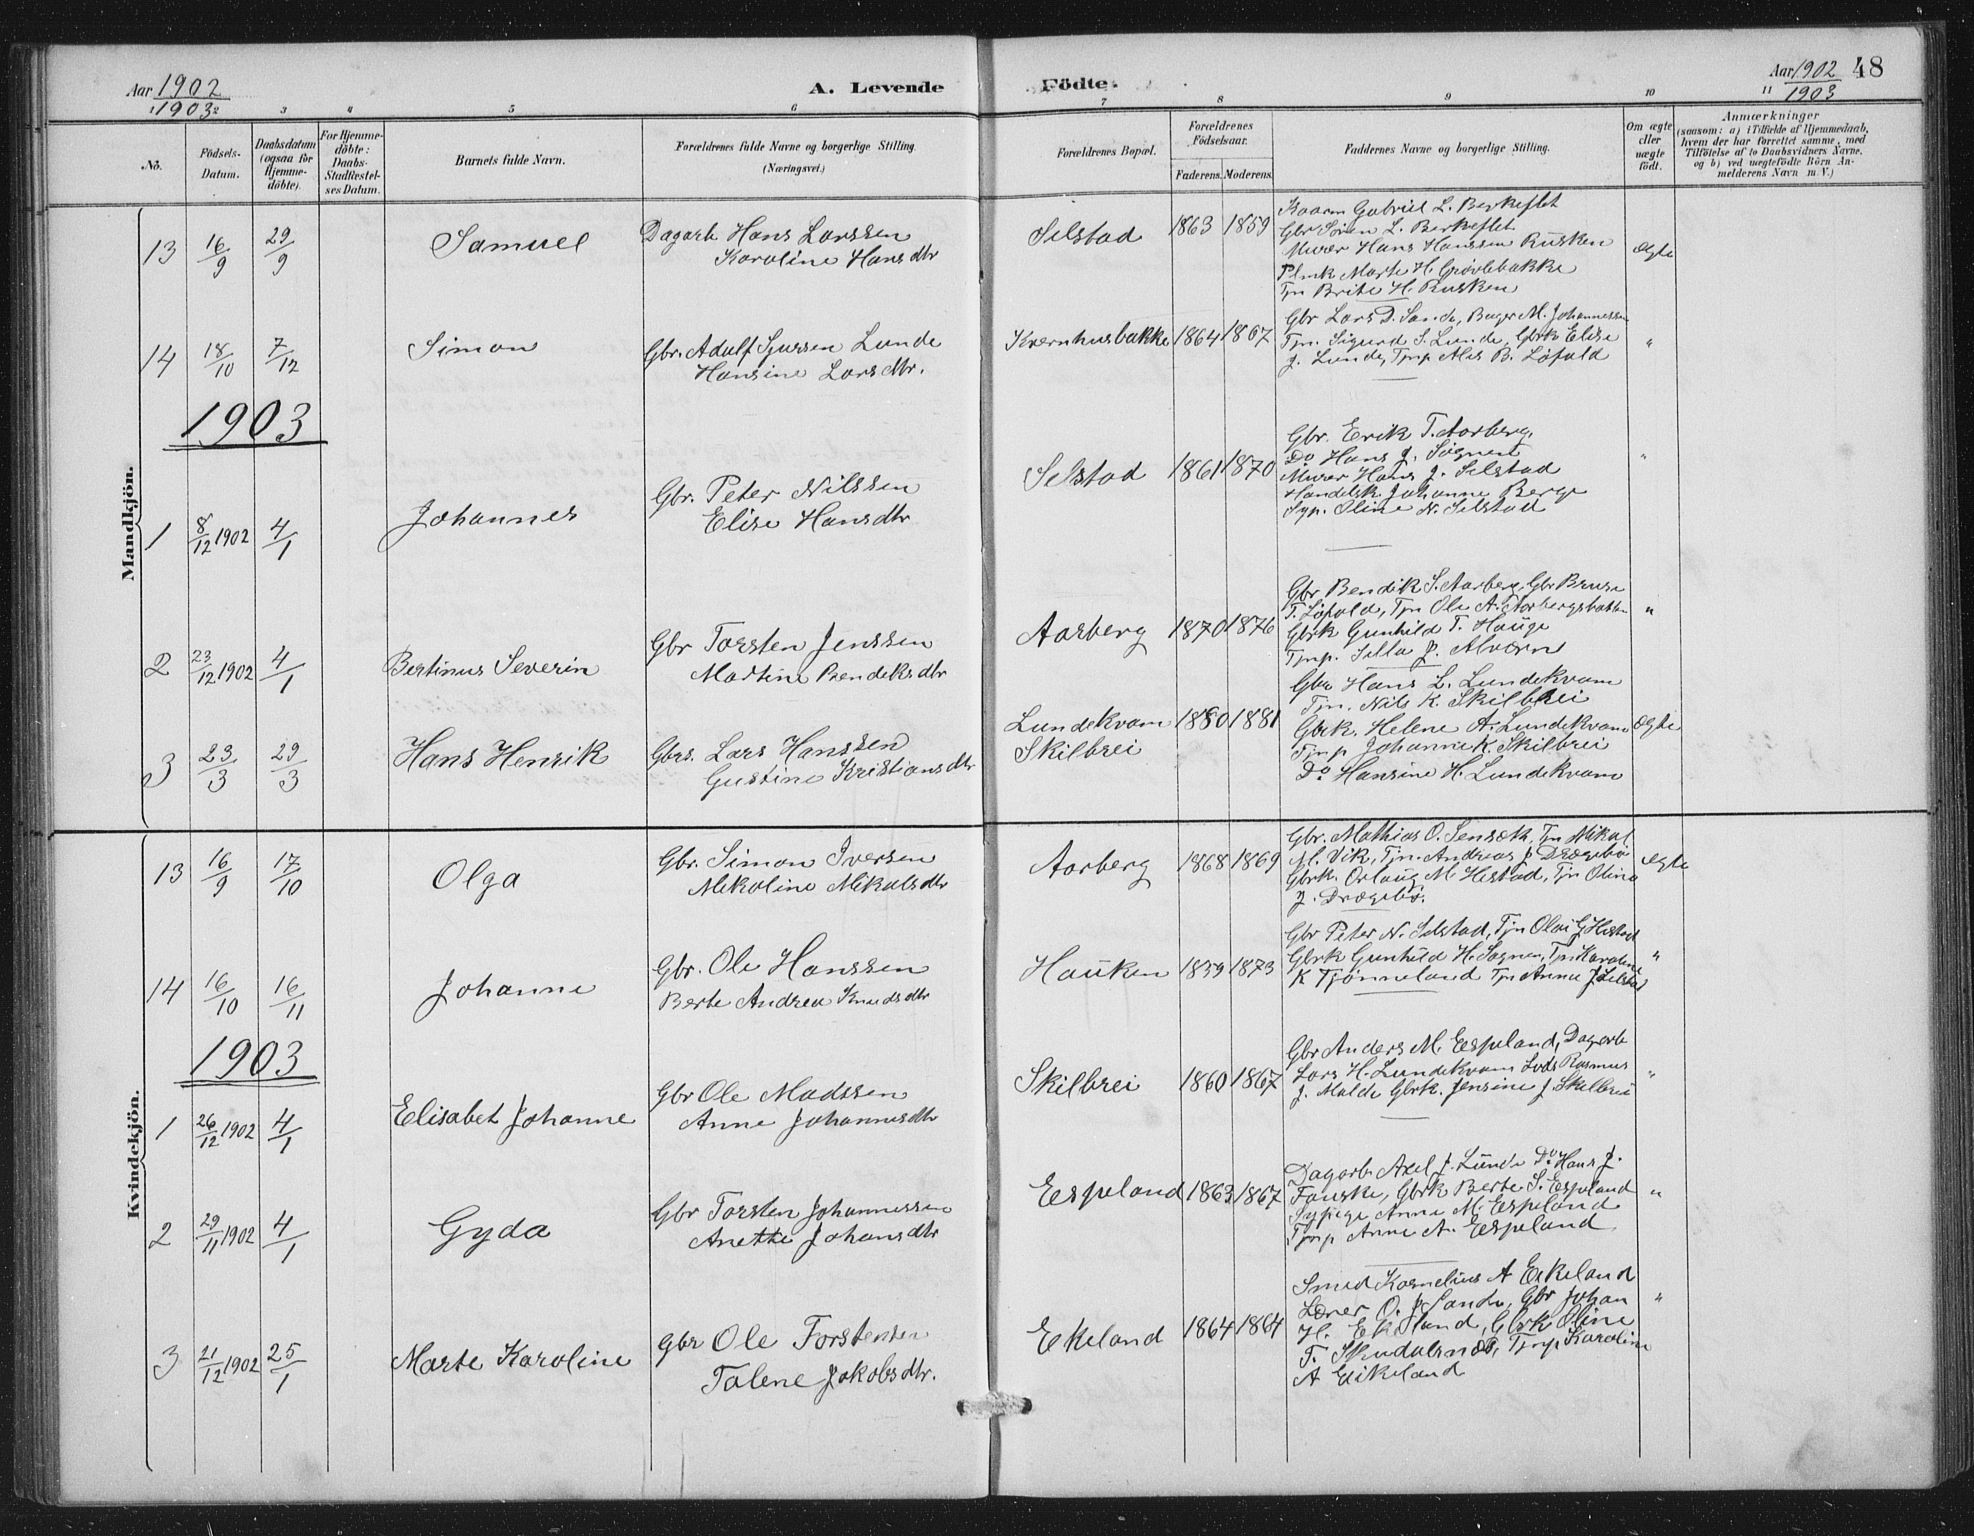 Aar 1902
1903
A. Levende
Födte.
Aar 1902
1903
48
1 2 3 4 5 6 7 8 9 10 11
No.
Födsels-Datum.
Daabsdatum (ogsaa for Hjemme-döbte).
For Hjemme-döbte: Daabs-Stadfæstel-ses Datum.
Barnets fulde Navn.
Forældrenes fulde Navne og borgerlige Stilling. (Næringsvei.)
Forældrenes Bopæl.
Forældrenes Födselsaar.
Faderens. Moderens.
Faddernes Navne og borgerlige Stilling.
Om ægte eller uægte födt.
Anmærkninger
(saasom: a) i Tilfælde af Hjemmedaab,
hvem der har forrettet samme, med
Tilföielse af to Daabsvidners Navne.
og b) ved uægtefödte Börn An-
melderens Navn m. V.)
Mandkjön.
13 16/9 29/9 Samuel Dagarb Hans Larssen
Karoline Hansdtr
Selstad 1863 1859
Gabriel L. Berkeflet
Gbr Søren L. Berkeflet
Murer Hans Hanssen Rusken
Plmk Marte H. Grøvlebakke
Tjn Brite H. Rusken
ægte
14 18/10 7/12 Simon Gbr. Adolf Sjurssen Lunde
Hansine Larsdtr.
Kvernhusbakke 1864 1867
Gbr Lars D. Sande, Bager M. Johannessen
Tjn. Sigurd S. Lunde, Gbrk Elise
J. Lunde, Tjnp Ales B. Løfald
"
1903
1 8/12 1902 4/1 Johannes Gbr. Peter Nilssen
Elise Hansdtr
Selstad 1861 1870
Gbr. Erik T. Aarberg.
Do Hans J. Sognen
Murer Hans J. Selstad
Handelsk. Johanne Berge
Syp. Oline N. Selstad
"
2 23/12 1902 4/1 Bertinus Severin Gbr Torsten Jenssen
Martine Bendiksdtr
Aarberg 1870 1876
Gbr Bendik S. Aarberg, Gbr Bruse
T. Løfald, Tjn Ole A. Aarbergsbakken
Gbrk Gunhild T. Hauge
Tjnp. Silla J. Alværn
"
3 23/3 29/3 Hans Henrik Gbrs. Lars Hanssen
Gustine Kristiansdtr
Lundekvam
Skilbrei
1880 1881
Gbr Hans L. Lundekvam
Tjn. Nils K. Skilbrei
Gbrk. Helene A. Lundekvam
Tjnp Johanne K. Skilbrei
Do Hansine H. Lundekvam
Ægte
Kvindekjön.
13 16/9 17/10 Olga Gbr. Simon Iversen
Nikoline Mikalsdtr
Aarberg 1868 1869
Gbr. Mathias O. Senseth, Tjn Mikal
M. Vik, Tjn. Andreas J. Drægebø
Gbrk. Orlaug M. Hestad, Tjn Olina
J. Drægebø.
ægte
14 16/10 16/11 Johanne Gbr. Ole Hanssen
Berte Andrea Knudsdtr
Hauken 1859 1873
Gbr Peter N. Selstad, Tjn Olai G Hestad
Gbrk Gunhild H. Sognen, Tjn Karoline
K Tjønneland Tjn Anna J Selstad
"
1903
1 26/12 1902 4/1 Elisabet Johanne Gbr Ole Madssen
Anne Johannesdtr
Skilbrei 1860 1867
Gbr Anders M. Espeland, Dagarb
Lars H. Lundekvam Lods Rasmus
J. Malde Gbrk. Jensine J Skilbrei
"
2 29/11 1902 4/1 Gyda Gbr Torsten Johannessen
Anette Johansdtr
Espeland 1863 1867
Dagarb. Axel J. Lunde Do Hans J.
Fauske, Gbrk Berte S. Espeland
Sypige Anne M. Espeland
Tjnp Anne A. Espeland
"
3 21/12 1902 25/1 Marte Karoline Gbr Ole Torstensen
Talene Jakobsdtr.
Ekeland 1864 1864
Smed Kornelius A Eikeland
Lærer O. J Sande, Gbr Johan
H. Ekeland, Gbrk Oline
T. Skudalsnes, Tjnp Karoline
A Eikeland
"